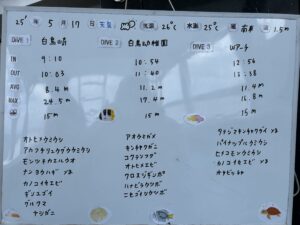 25' 年 5月 17 日 天気 気温 26℃ 水温 25℃ 風 南東 波 1.5m
DIVE 1 白鳥の岬 DIVE 2 白鳥幼稚園 DIVE 3 Wアーチ
IN 9:10 10:54 12:56
OUT 10:03 11:40 13:38
AVG 8.4m 11.2m 11.4m
MAX 24.5m 17.4m 15.8m
15m 15m 15m
オトヒメウミウシ
アカフチリュウグウウミウシ
モンツキカエルウオ
ナンヨウハギ yg
カノコイセエビ
ギンユゴイ
グルクマ
ナンダニ
アオウミガメ
キンチャクガニ
コクテンフグ
オトヒメエビ
クロスジギンポ
ハナビラウツボ
ニセゴイシウツボ
タテジマキンチャクダイ yg
パイナップルウミウシ
ヒメコモンウミウシ
カノコイセエビ yg
オキナワ